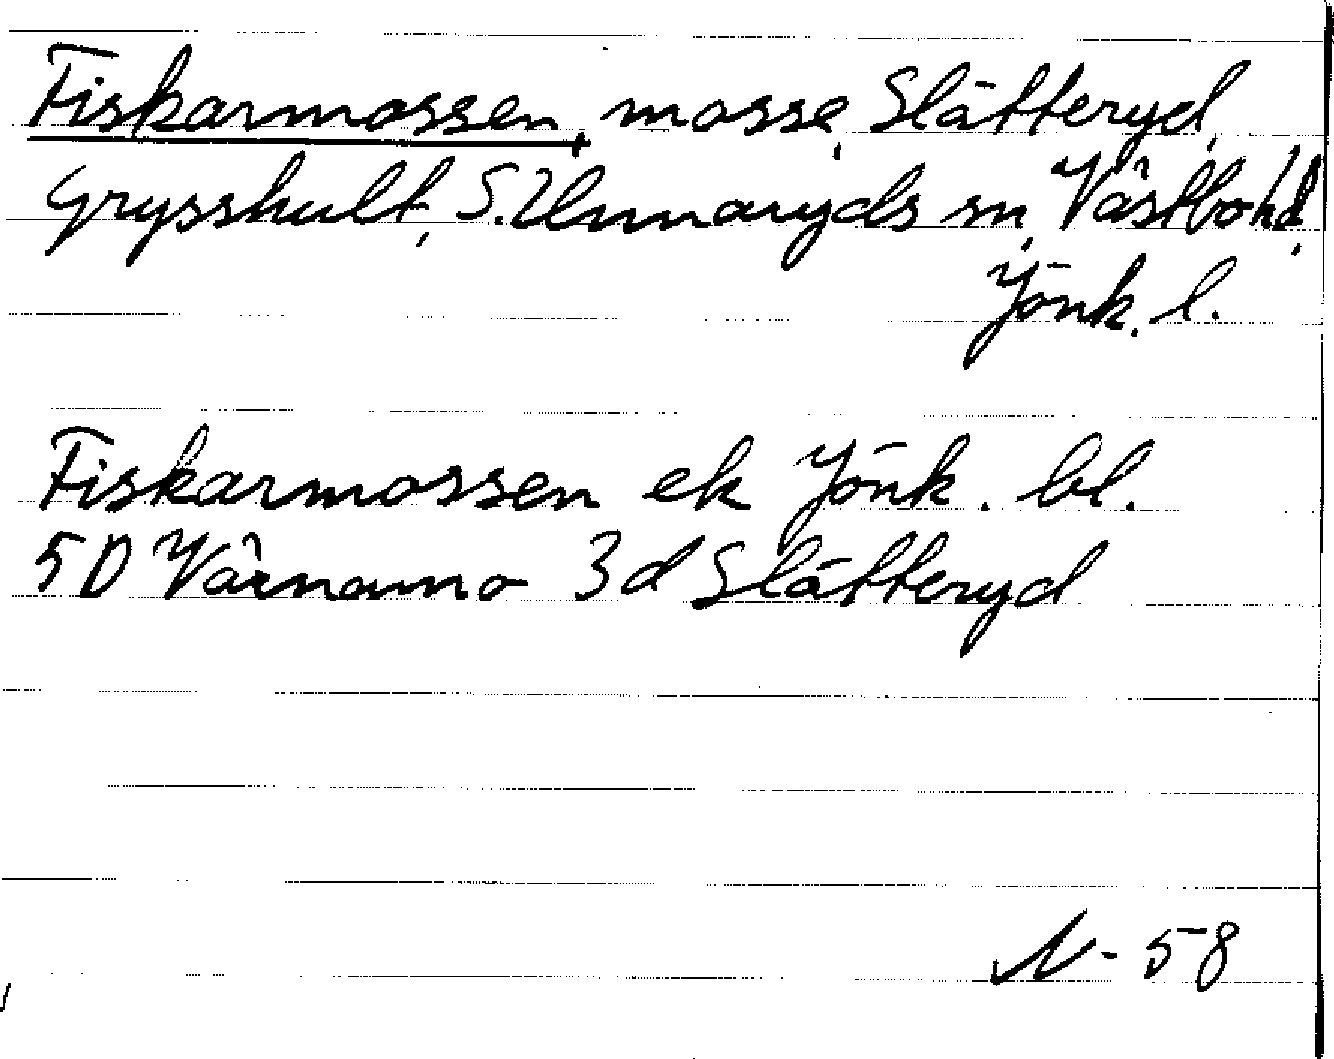 Fiskarmossen, mosse, Slätteryd,
Grysshult, S. Unnaryds sn, Västbo hd,
Jönk. l.
Fiskarmossen ek Jönk. bl.
5D Värnamo 3d Slätteryd
N-58